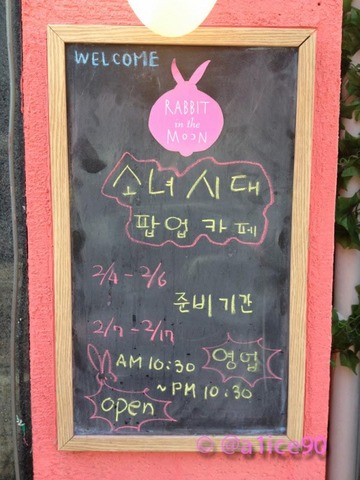 WELCOME
RABBIT
in the
MOON
소녀시대
팝업카페
2/4 - 2/6
준비기간
2/7 - 2/17
AM 10:30
영업
~ PM 10:30
open
© @a1ice90